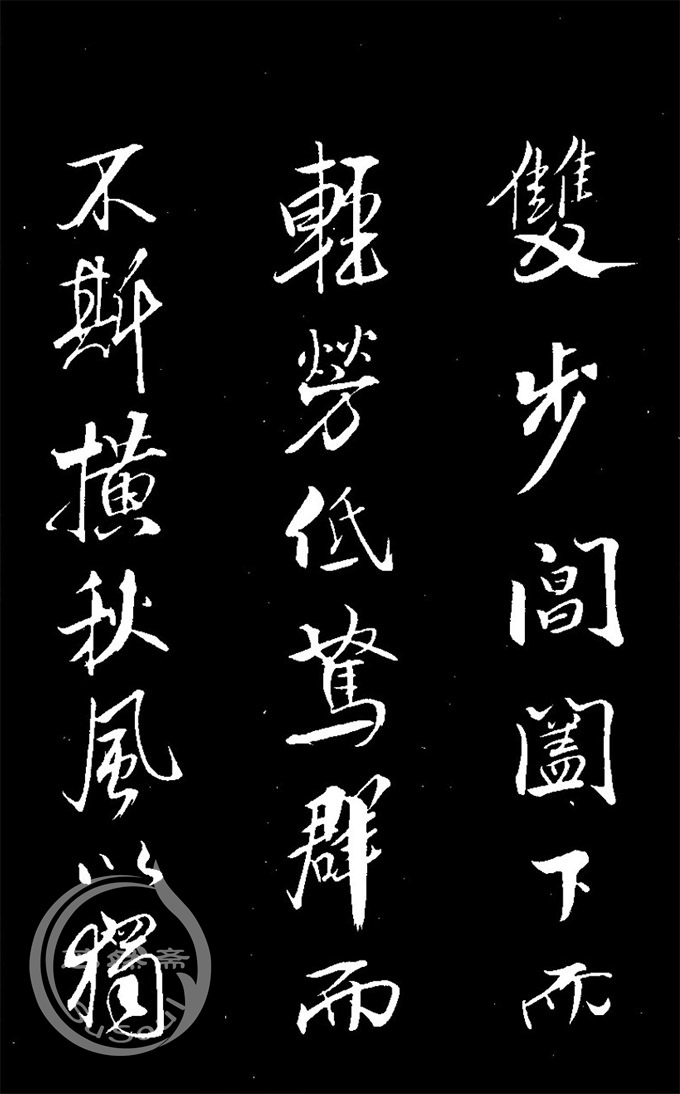 雙步閶闔下而
輕勞低駑群而
不斯橫秋風以獨